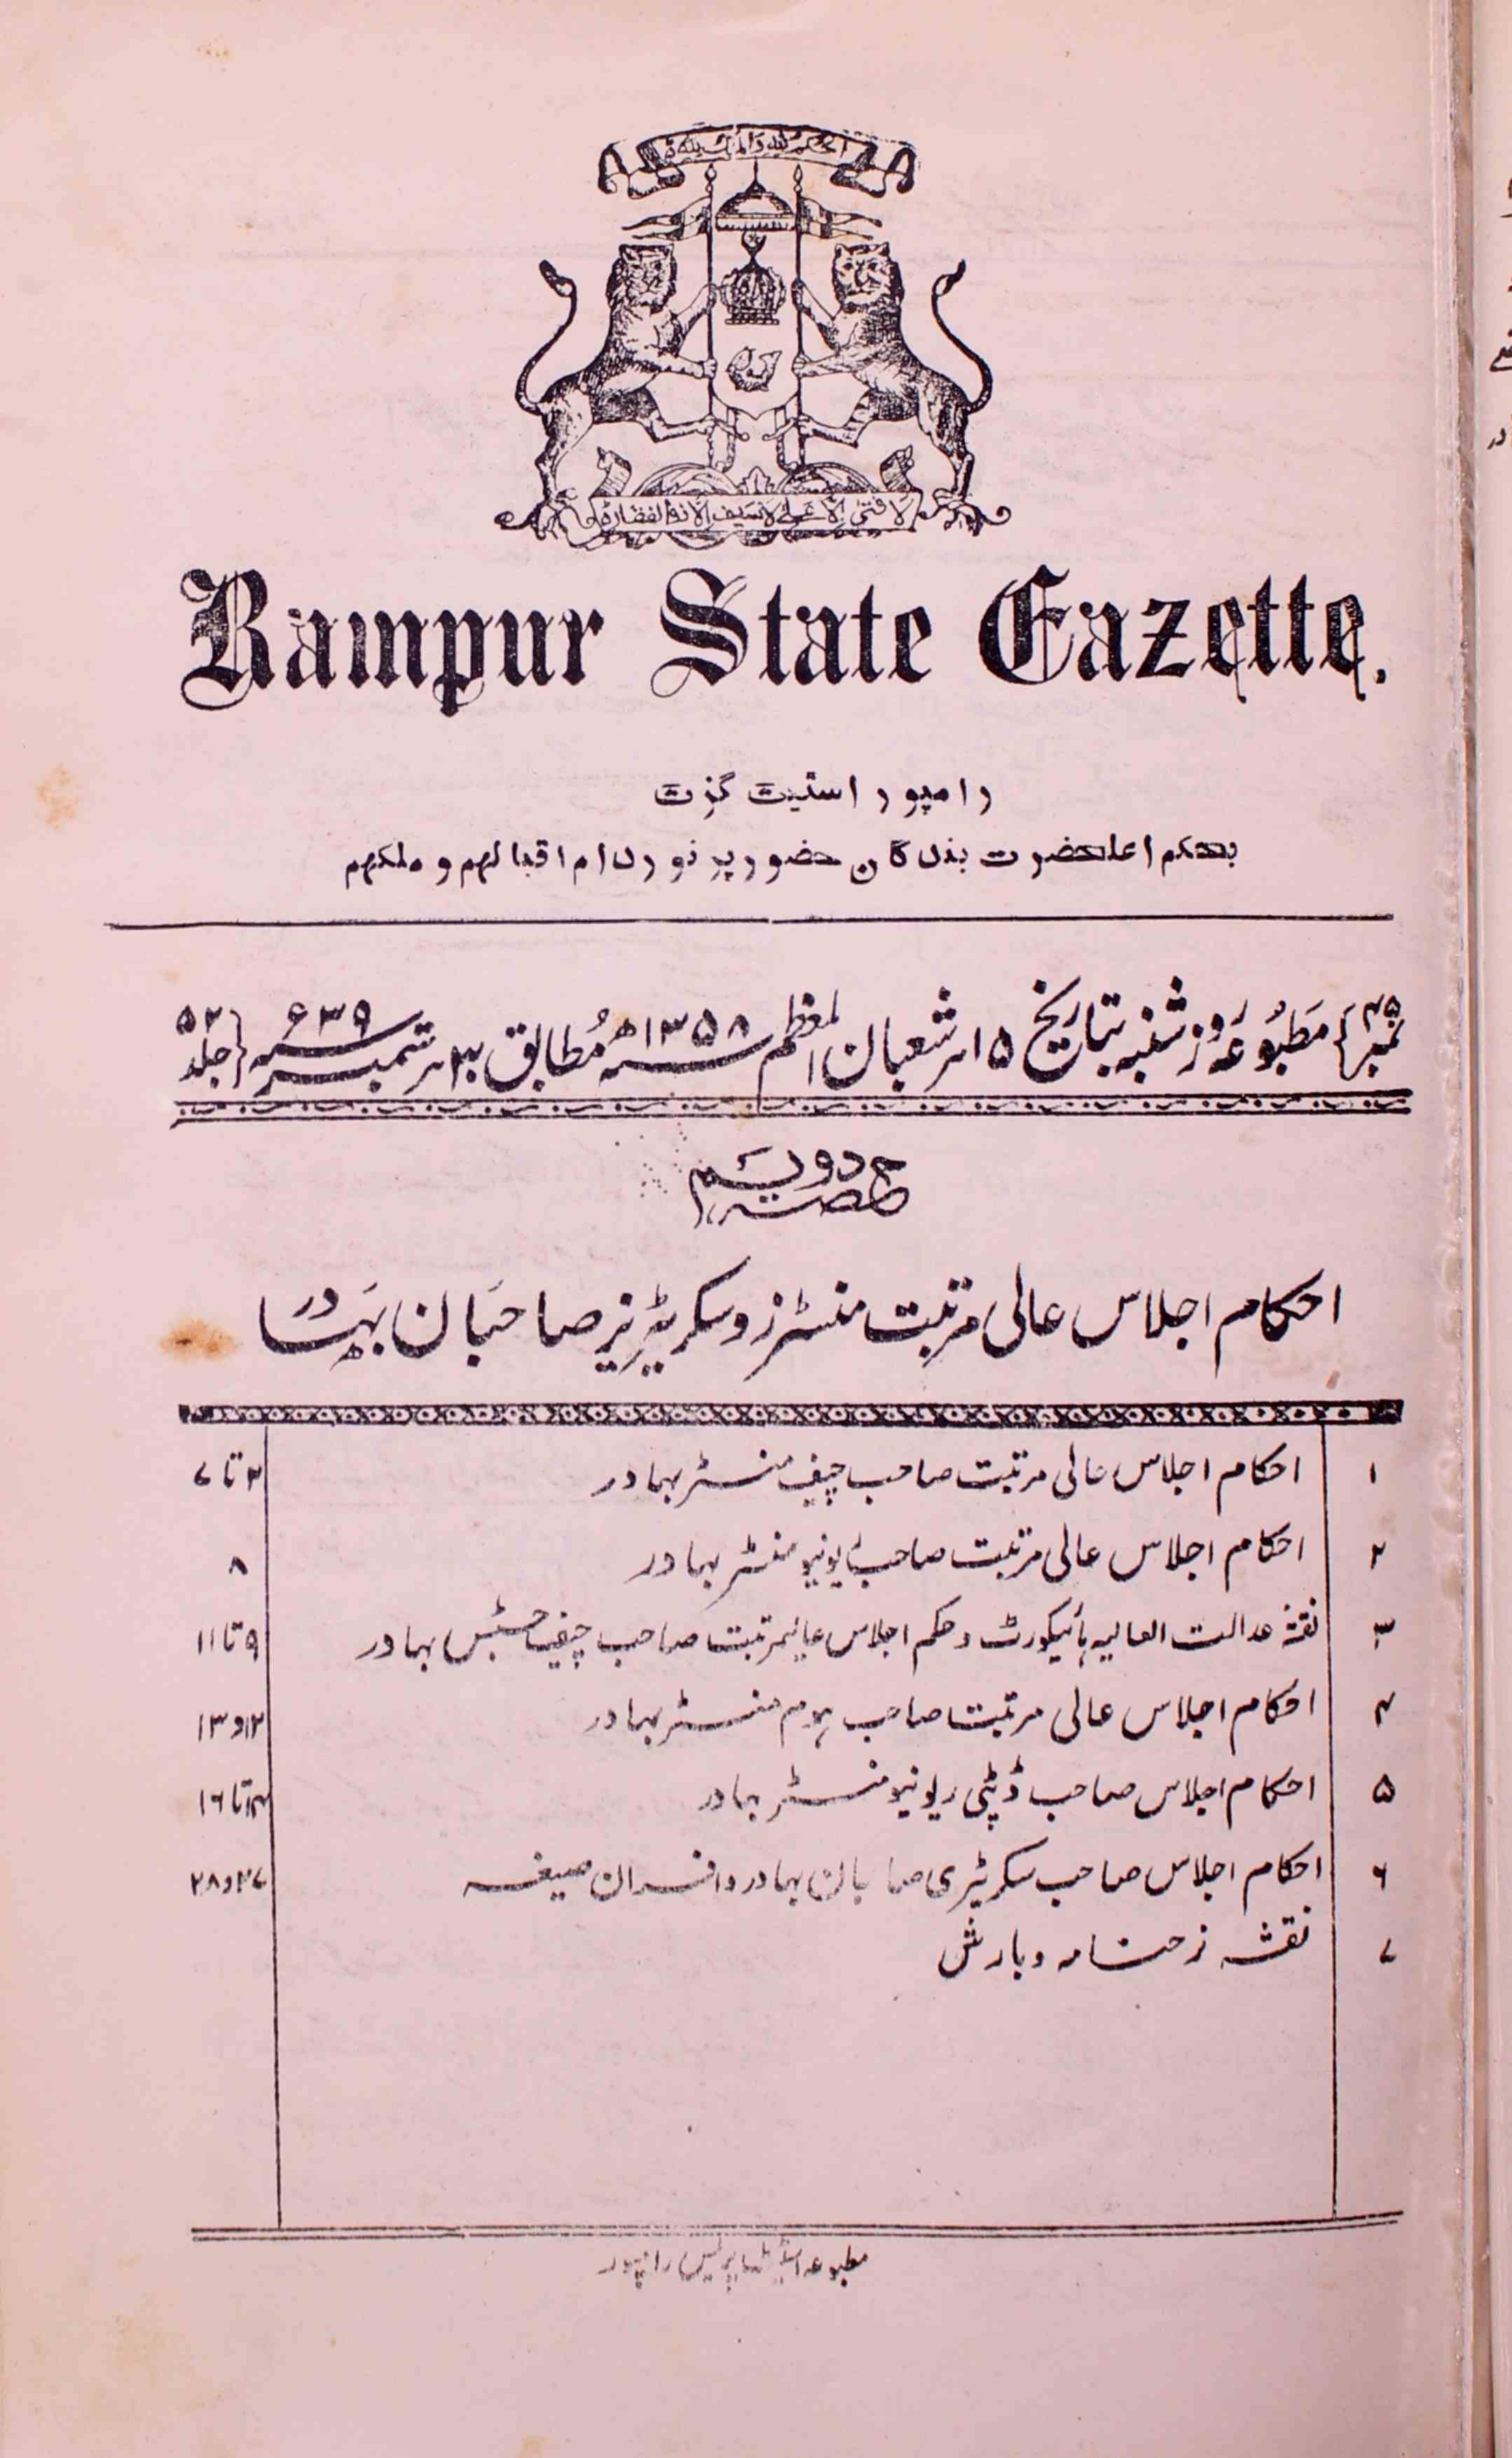 الحکم للہ والملک للہ
لا فتی الا علی لا سیف الا ذوالفقار
Rampur State Gazette.
رامپور اسٹیٹ گزٹ
بحکم اعلحضرت بندگان حضور پرنور دام اقبالہم و ملکہم
نمبر ۴۵ } مطبوعہ روز شنبہ بتاریخ ۱۵ شعبان المعظم ۱۳۵۸ھ مطابق ۳۰ ستمبر ۳۹ء { جلد ۵۲
حصہ دویم
احکام اجلاس عالی مرتبت منسٹرز و سکریٹریز صاحبان بہادر
۱ احکام اجلاس عالی مرتبت صاحب چیف منسٹر بہادر ۳ تا ۷
۲ احکام اجلاس عالی مرتبت صاحب ریونیو منسٹر بہادر ۸
۳ نقشہ عدالت العالیہ ہائیکورٹ و حکم اجلاس عالیمرتبت صاحب چیف جسٹس بہادر ۹ تا ۱۱
۴ احکام اجلاس عالی مرتبت صاحب ہوم منسٹر بہادر ۱۲ و ۱۳
۵ احکام اجلاس صاحب ڈپٹی ریونیو منسٹر بہادر ۱۴ تا ۱۶
۶ احکام اجلاس صاحب سکریٹری صاحبان بہادر و افسران صیغہ ۲۷ و ۲۸
۷ نقشہ نرخنامہ و بارش
مطبوعہ اسٹیٹ پریس رامپور